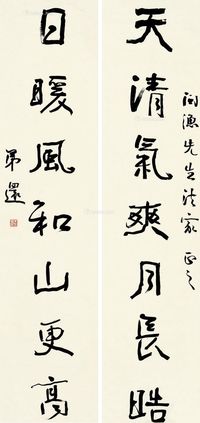 天清氣爽月長皓
問漁先生法家正之
日暖風和山更高
弟還